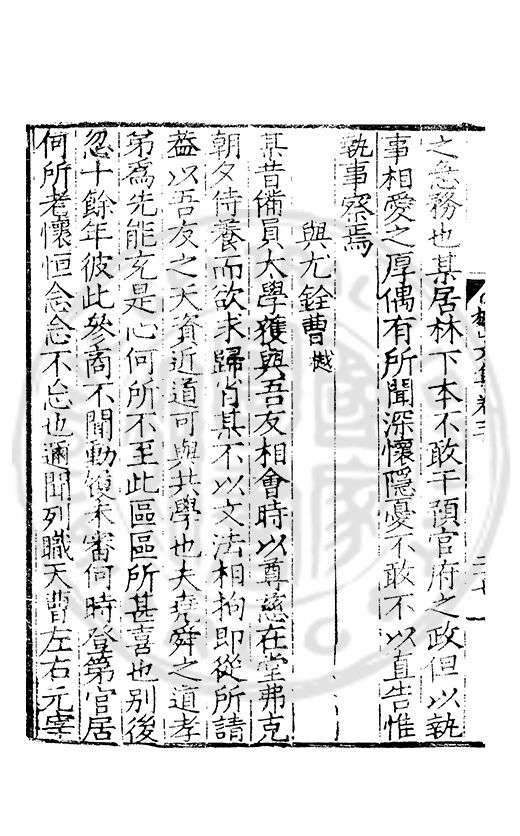 之急務也某居林下本不敢干預官府之政但以執
事相愛之厚偶有所聞深懷隱憂不敢不以直告惟
執事察焉
與尤銓曹樾
某昔備員太學獲與吾友相會時以尊慈在堂弗克
朝夕侍養而欲求歸省某不以文法相拘即從所請
葢以吾友之天資近道可與共學也夫堯舜之道孝
弟爲先能充是心何所不至此區區所甚喜也別後
忽十餘年彼此參商不聞動履未審何時登第官居
何所老懷恒念念不忘也邇聞列職天曹左右元宰
文集卷三